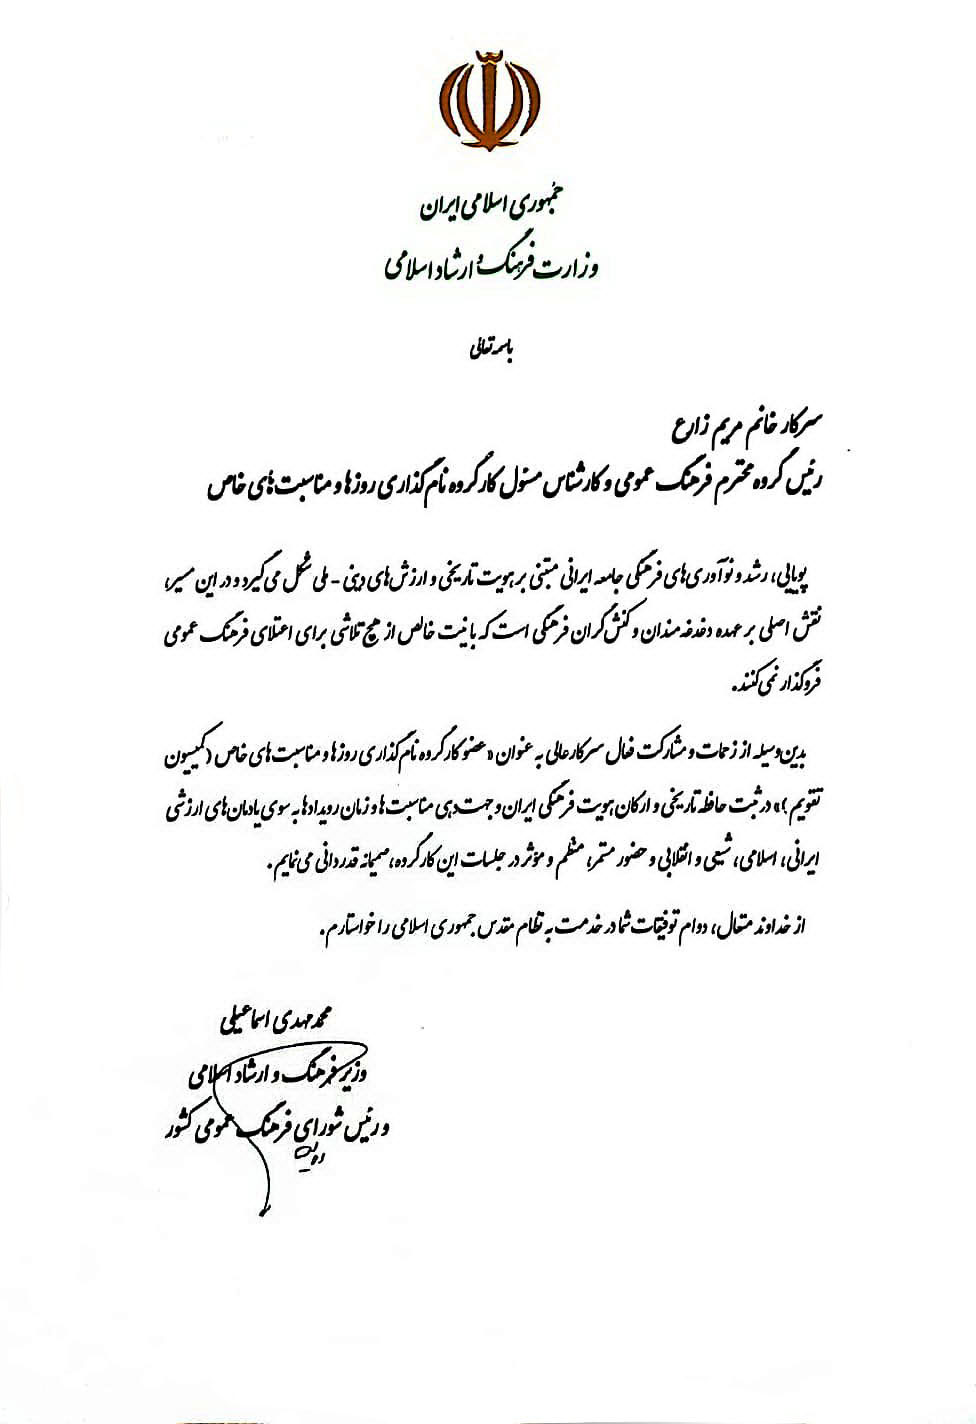 جمهوری اسلامی ایران
وزارت فرهنگ و ارشاد اسلامی
باسمه تعالی
سرکار خانم مریم زارع
رئیس گروه محترم فرهنگ عمومی و کارشناس مسئول کارگروه نام‌گذاری روزها و مناسبت‌های خاص
پویایی، رشد و نوآوری‌های فرهنگی جامعه ایرانی مبتنی بر هویت تاریخی و ارزش‌های دینی - ملی شکل می‌گیرد و در این مسیر،
نقش اصلی بر عهده دغدغه‌مندان و کنش‌گران فرهنگی است که با نیت خالص از هیچ تلاشی برای اعتلای فرهنگ عمومی
فروگذار نمی‌کنند.
بدین‌وسیله از زحمات و مشارکت فعال سرکارعالی به عنوان «عضو کارگروه نام‌گذاری روزها و مناسبت‌های خاص (کمیسیون
تقویم)» در ثبت حافظه تاریخی و ارکان هویت فرهنگی ایران و جهت‌دهی مناسبت‌ها و زمان رویدادها به سوی یادمان‌های ارزشی
ایرانی، اسلامی، شیعی و انقلابی و حضور مستمر، منظم و مؤثر در جلسات این کارگروه، صمیمانه قدردانی می‌نمایم.
از خداوند متعال، دوام توفیقات شما در خدمت به نظام مقدس جمهوری اسلامی را خواستارم.
محمدمهدی اسماعیلی
وزیر فرهنگ و ارشاد اسلامی
و رئیس شورای فرهنگ عمومی کشور